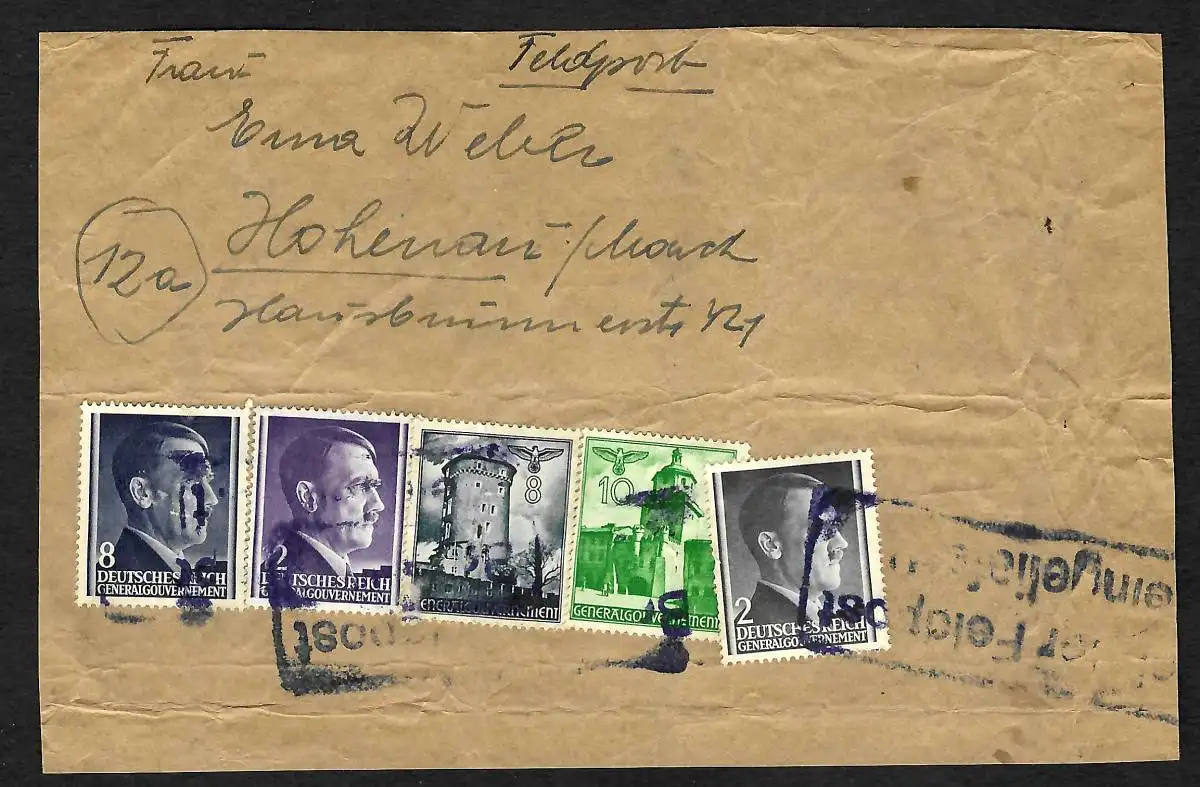 Frau Feldpost
Erna Weber
12a Hohenau/March
Hausbrunnerstr
8
DEUTSCHES REICH
GENERALGOUVERNEMENT
2
DEUTSCHES REICH
GENERALGOUVERNEMENT
8
GENERALGOUVERNEMENT
10
GENERALGOUVERNEMENT
2
DEUTSCHES REICH
GENERALGOUVERNEMENT